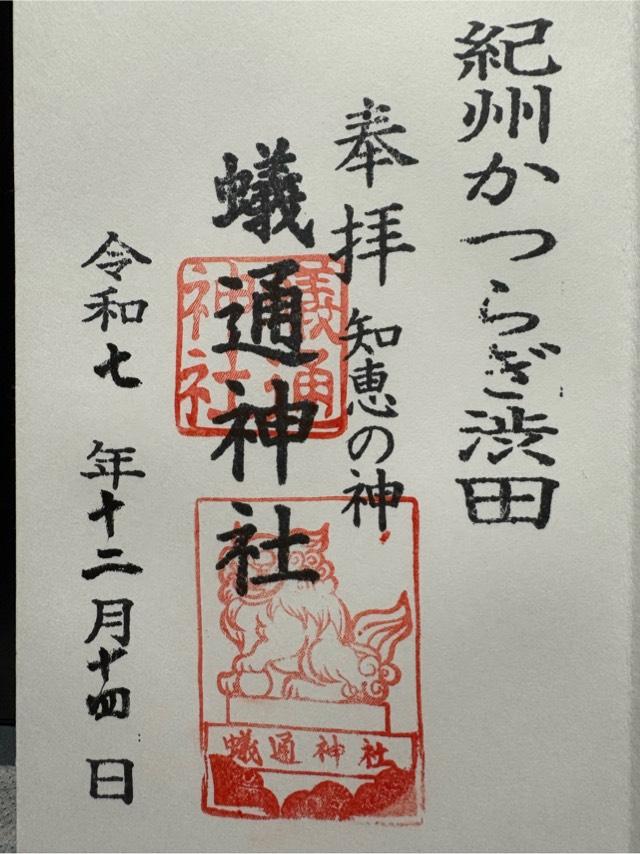 紀州かつらぎ渋田
奉拝
知恵の神
蟻通神社
蟻通
神社
蟻通神社
令和七年十二月十四日